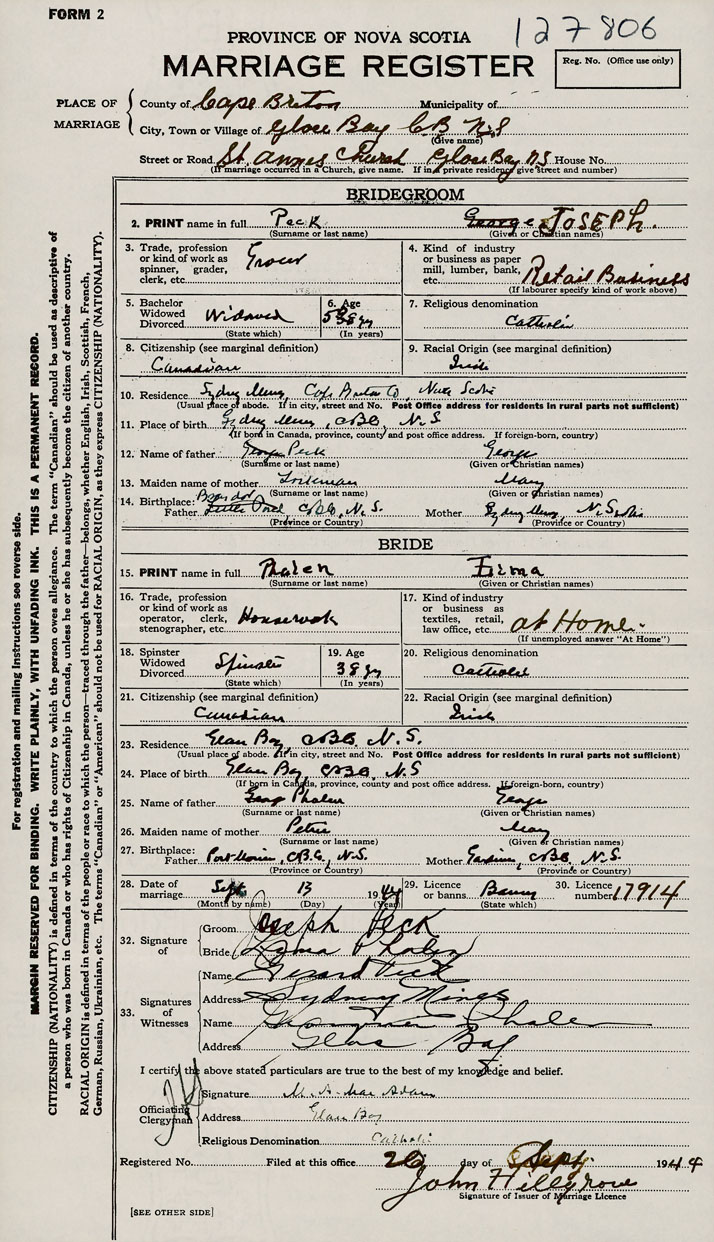 FORM 2
127806
PROVINCE OF NOVA SCOTIA
MARRIAGE REGISTER
Reg. No. (Office use only)
PLACE OF MARRIAGE
County of Cape Breton Municipality of
City, Town or Village of Glace Bay C.B N.S
(Give name)
Street or Road St. Annes Church Glace Bay N.S House No.
(If marriage occurred in a Church, give name. If in a private residence give street and number)
BRIDEGROOM
2. PRINT name in full Peck George JOSEPH.
(Surname or last name) (Given or Christian names)
3. Trade, profession or kind of work as spinner, grader, clerk, etc. Grocer
4. Kind of industry or business as paper mill, lumber, bank, etc. Retail Business
(If labourer specify kind of work above)
5. Bachelor Widowed Divorced Widowed
(State which)
6. Age
(In years)
7. Religious denomination
Catholic
8. Citizenship (see marginal definition)
Canadian
9. Racial Origin (see marginal definition)
Irish
10. Residence Sydney Mines, Cape Breton Co, Nova Scotia
(Usual place of abode. If in city, street and No. Post Office address for residents in rural parts not sufficient)
11. Place of birth Sydney Mines, C.B.Co, N.S
(If born in Canada, province, county and post office address. If foreign-born, country)
12. Name of father George Peck George
(Surname or last name) (Given or Christian names)
13. Maiden name of mother Mary
(Surname or last name) (Given or Christian names)
14. Birthplace:
Father C.B.Co, N.S. Mother Sydney Mines, N. Scotia
(Province or Country) (Province or Country)
BRIDE
15. PRINT name in full Phalen Erma
(Surname or last name) (Given or Christian names)
16. Trade, profession or kind of work as operator, clerk, stenographer, etc. Housework
17. Kind of industry or business as textiles, retail, law office, etc. at Home.
(If unemployed answer "At Home")
18. Spinster Widowed Divorced Spinster
(State which)
19. Age
38 yrs
(In years)
20. Religious denomination
Catholic
21. Citizenship (see marginal definition)
Canadian
22. Racial Origin (see marginal definition)
Irish
23. Residence Glace Bay, C.B.Co, N.S.
(Usual place of abode. If in city, street and No. Post Office address for residents in rural parts not sufficient)
24. Place of birth Glace Bay, C.B.Co, N.S
(If born in Canada, province, county and post office address. If foreign-born, country)
25. Name of father George Phalen George
(Surname or last name) (Given or Christian names)
26. Maiden name of mother Petrie Mary
(Surname or last name) (Given or Christian names)
27. Birthplace:
Father Port Morien, C.B.Co, N.S. Mother Gardiner, C.B.Co, N.S.
(Province or Country) (Province or Country)
28. Date of marriage Sept 13 1944
(Month by name) (Day) (Year)
29. Licence or banns Banns
(State which)
30. Licence number 17914
32. Signature of
Groom Joseph Peck
Bride Erma Phalen
33. Signatures of Witnesses
Name Gerard Peck
Address Sydney Mines
Name Phalen
Address Glace Bay
I certify the above stated particulars are true to the best of my knowledge and belief.
Officiating Clergyman
Signature M. A. MacAdam
Address Glace Bay
Religious Denomination Catholic
Registered No. Filed at this office 26 day of Sept. 1944
John Hillgrove
Signature of Issuer of Marriage Licence
[SEE OTHER SIDE]
For registration and mailing instructions see reverse side.
MARGIN RESERVED FOR BINDING. WRITE PLAINLY, WITH UNFADING INK. THIS IS A PERMANENT RECORD.
CITIZENSHIP (NATIONALITY) is defined in terms of the country to which the person owes allegiance. The term "Canadian" should be used as descriptive of
a person who was born in Canada or who has rights of Citizenship in Canada, unless he or she has subsequently become the citizen of another country.
RACIAL ORIGIN is defined in terms of the people or race to which the person—traced through the father—belongs, whether English, Irish, Scottish, French,
German, Russian, Ukrainian, etc. The terms "Canadian" or "American" should not be used for RACIAL ORIGIN, as they express CITIZENSHIP (NATIONALITY).